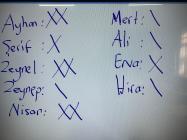 Ayhan: XX
Şerif: X
Zeynel: XX
Zeynep: \
Nisan: XX
Mert: \
Ali: \
Enva: X
Wira: \